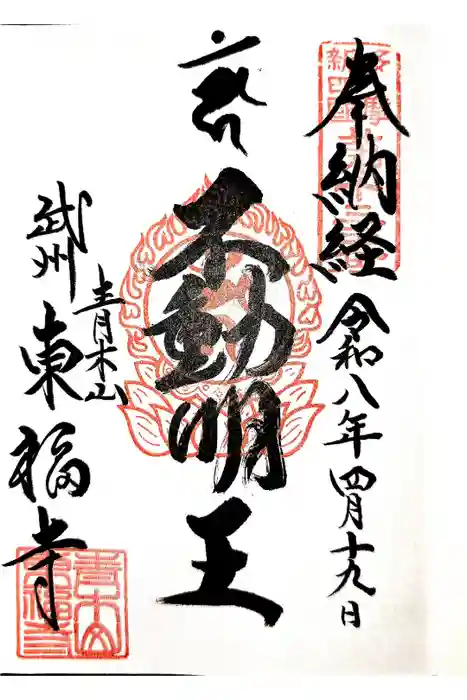 奉納経
令和八年四月十九日
不動明王
武州
青木山
東福寺